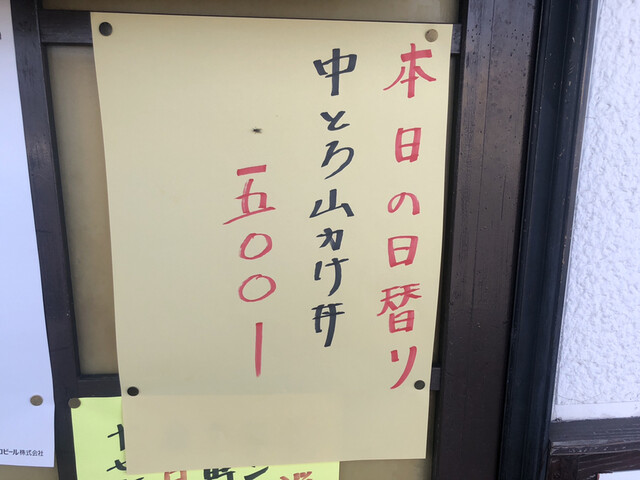 本日の日替り
中とろ山かけ丼
一五〇〇ー
ロビール株式会社